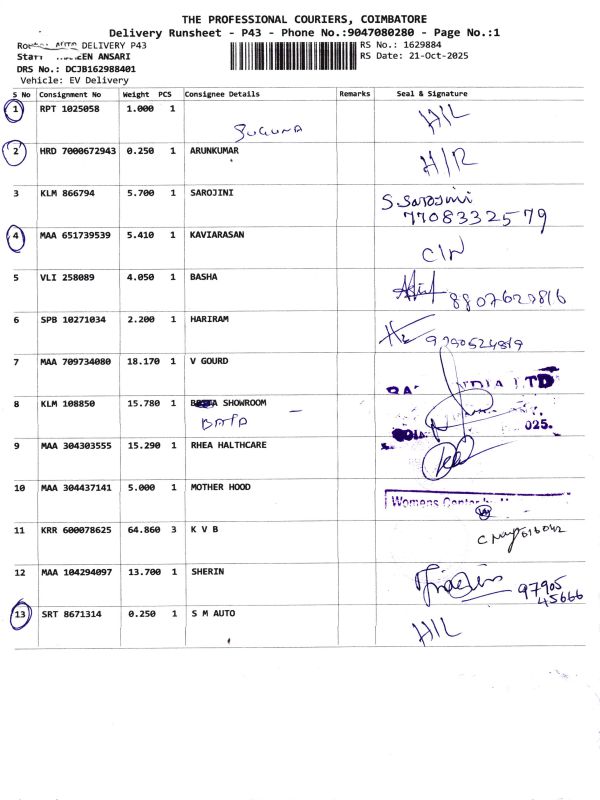 THE PROFESSIONAL COURIERS, COIMBATORE
Delivery Runsheet - P43 - Phone No.:9047080280 - Page No.:1
DELIVERY P43 RS No.: 1629884
EEN ANSARI RS Date: 21-Oct-2025
DRS No.: DCJB162988401
Vehicle: EV Delivery
S No Consignment No Weight PCS Consignee Details Remarks Seal & Signature
1 RPT 1025058 1.000 1 H/L
SUGUNA
2 HRD 7000672943 0.250 1 ARUNKUMAR H/R
3 KLM 866794 5.700 1 SAROJINI S. Sarojini
7708332579
4 MAA 651739539 5.410 1 KAVIARASAN C/N
5 VLI 258089 4.050 1 BASHA
6 SPB 10271034 2.200 1 HARIRAM
7 MAA 709734080 18.170 1 V GOURD
INDIA LTD
8 KLM 108850 15.780 1 SHOWROOM
BATA 025.
9 MAA 304303555 15.290 1 RHEA HALTHCARE
10 MAA 304437141 5.000 1 MOTHER HOOD
Womens
11 KRR 600078625 64.860 3 K V B
12 MAA 104294097 13.700 1 SHERIN 97905
45666
13 SRT 8671314 0.250 1 S M AUTO H/L